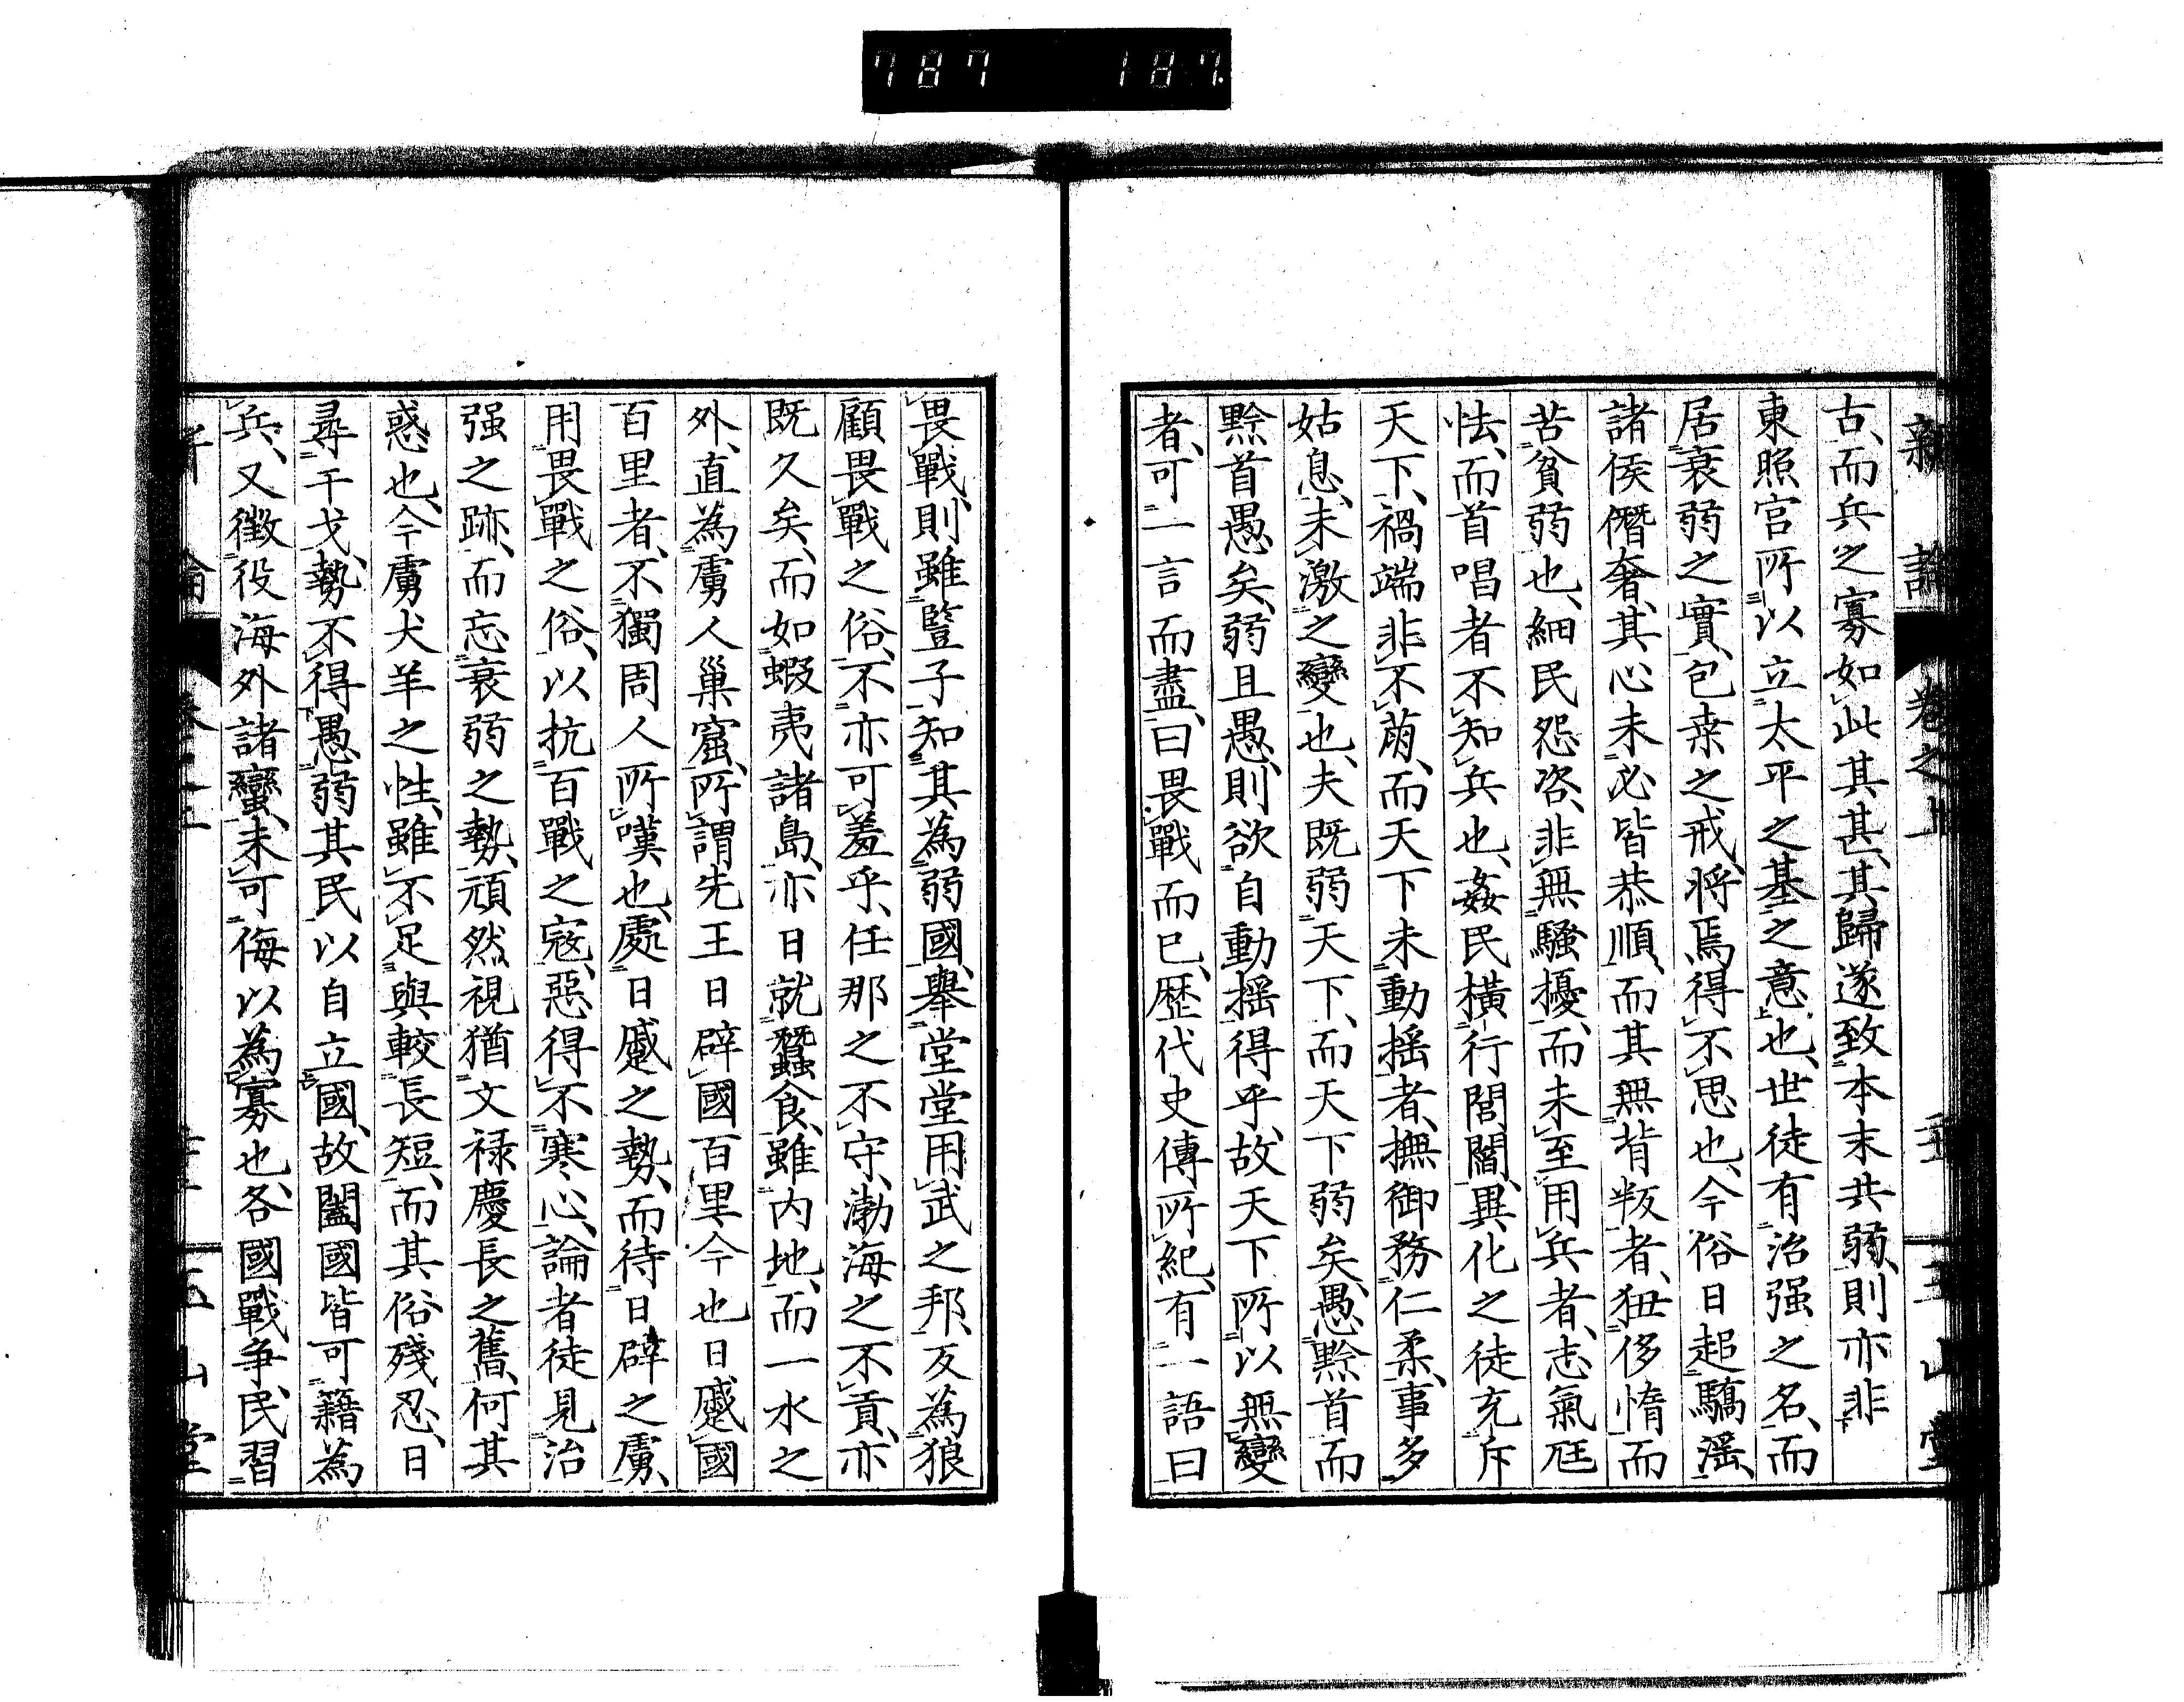 787 187.
新論 卷之上 玉山堂
古、而兵之寡如此其甚、其歸遂致本末共弱、則亦非
東照宮所以立太平之基之意也、世徒有治强之名、而
居衰弱之實、包桒之戒、將焉得不思也、今俗日趨驕滛、
諸侯僭奢、其心未必皆恭順、而其無背叛者、狃侈惰而
苦貧弱也、細民怨咨、非無騷擾、而未至用兵者、志氣尫
怯、而首唱者不知兵也、姦民橫行閭閻、異化之徒充斥
天下、禍端非不萠、而天下未動搖者、撫御務仁柔、事多
姑息、未激之變也、夫既弱天下、而天下弱矣、愚黔首而
黔首愚矣、弱且愚、則欲自動搖得乎、故天下所以無變
者、可一言而盡、曰畏戰而已、歷代史傳所紀、有一語曰
畏戰、則雖豎子知其為弱國、舉堂堂用武之邦、反為狼
顧畏戰之俗、不亦可羞乎、任那之不守、渤海之不貢、亦
既久矣、而如蝦夷諸島、亦日就蠶食、雖內地、而一水之
外、直為虜人巢窟、所謂先王日辟國百里今也日蹙國
百里者、不獨周人所嘆也、處日蹙之勢、而待日辟之虜、
用畏戰之俗、以抗百戰之寇、惡得不寒心、論者徒見治
强之跡、而忘衰弱之勢、頑然視猶文禄慶長之舊、何其
惑也、今虜犬羊之性、雖不足與較長短、而其俗殘忍、日
尋干戈、勢不得愚弱其民以自立國、故闔國皆可籍為
兵、又徵役海外諸蠻、未可侮以為寡也、各國戰爭、民習
玉山堂